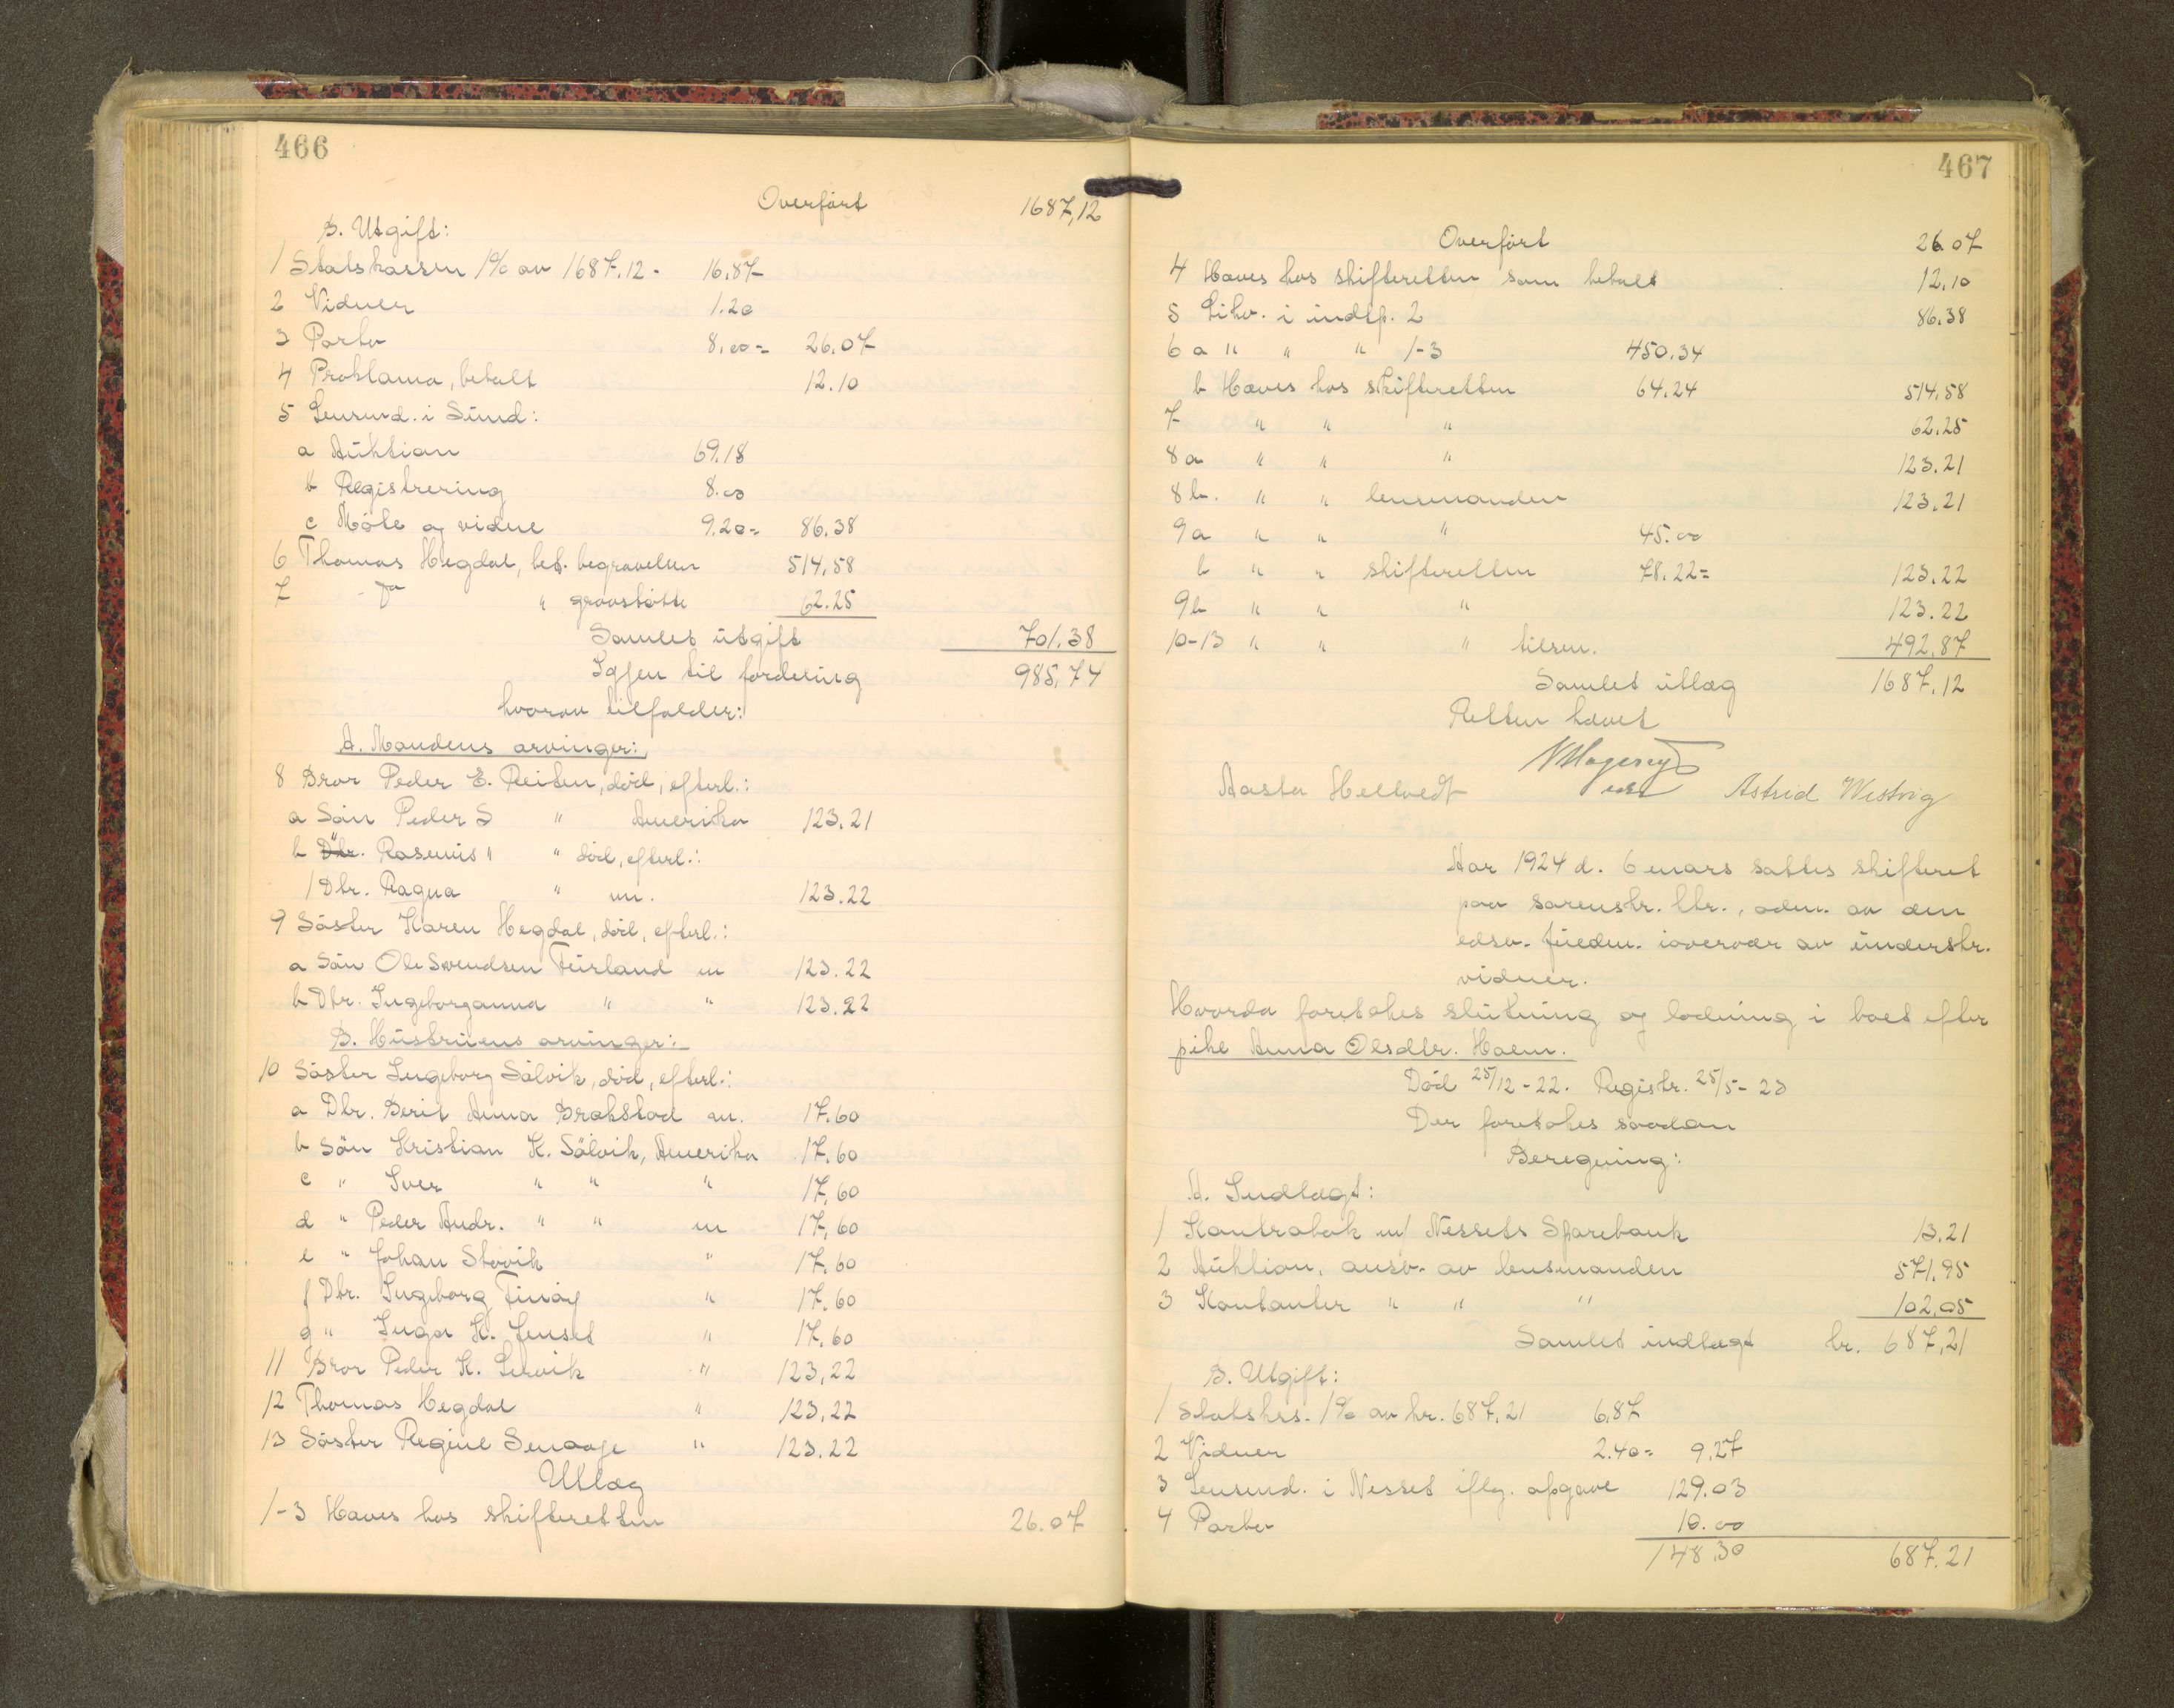 466
Overført 1687,12
B. Utgift:
1 Statskassen 1% av 1687.12 - 16.87
2 Vidner 1.20
3 Porto 8.00 = 26.07
4 Proklama, betalt 12.10
5 Lensmd. i Sund:
a Auktion 69.18
b Registrering 8.00
c Møte og vidne 9.20 = 86.38
6 Thomas Hegdal, bet. begravelsen 514,58
7 - Fa " gravstøtte 62.25
Samlet utgift 701.38
Igjen til fordeling 985,74
hvorav tilfalder:
A. Mandens arvinger:
8 Bror Peder E. Reiten, død, efterl.:
a Søn Peder S " Amerika 123.21
b Dtr. Rasmus " " død, efterl.:
1 Dtr. Ragna " m. 123.22
9 Søster Karen Hegdal, død, efterl.:
a Søn Ole Svendsen Furland m 123.22
b Dtr. Ingeborganna " " 123.22
B. Hustruens arvinger:
10 Søster Ingeborg Sølvik, død, efterl.:
a Dtr. Berit Anna Brakstad m. 17.60
b Søn Kristian K. Sølvik, Amerika 17.60
c " Iver " " " 17.60
d " Peder Andr. " " m 17.60
e " Johan Stovik " 17.60
f Dtr. Ingeborg Finøy " 17.60
g " Inga K. Jenset " 17.60
11 Bror Peder K. Lervik " 123,22
12 Thomas Hegdal " 123,22
13 Søster Regine Senoage " 123.22
Utlæg
1-3 Haves hos skifteretten 26.07
467
Overført 26.07
4 Haves hos skifteretten som betalt 12.10
5 Likv. i indtp. 2 86.38
6 a " " " 1-3 450.34
b Haves hos skifteretten 64.24 514,58
7 " " " 62.25
8 a " " " 123.21
8 b. " " lensmanden 123.21
9 a " " " 45.00
b " " skifteretten 78.22 = 123.22
9 b " " " 123.22
10-13 " " " tilsm. 492,87
Samlet utlæg 1687.12
Retten hævet
Aasta Heltvedt Astrid Westvig
Aar 1924 d. 6 mars sattes skifteret
paa sorenskr. ktr., adm. av den
edsv. fuldm. iovervær av underskr.
vidner.
Hvorda foretokes slutning og lodning i boet efter
pike Anna Olsdtr. Hoem.
Død 25/12-22. Registr. 25/5-23
Der foretokes saadan
Beregning:
A. Indtægt:
1 Kontrabok m/ Nessets Sparebank 13.21
2 Auktion, ansv. av lensmanden 571.95
3 Kontanter " " " 102.05
Samlet indtægt kr. 687,21
B. Utgift:
1 Statsks. 1% av kr. 687,21 6,87
2 Vidner 2.40 = 9,27
3 Lensmd. i Nesset iflg. opgave 129.03
4 Porto 10.00
148.30 687.21